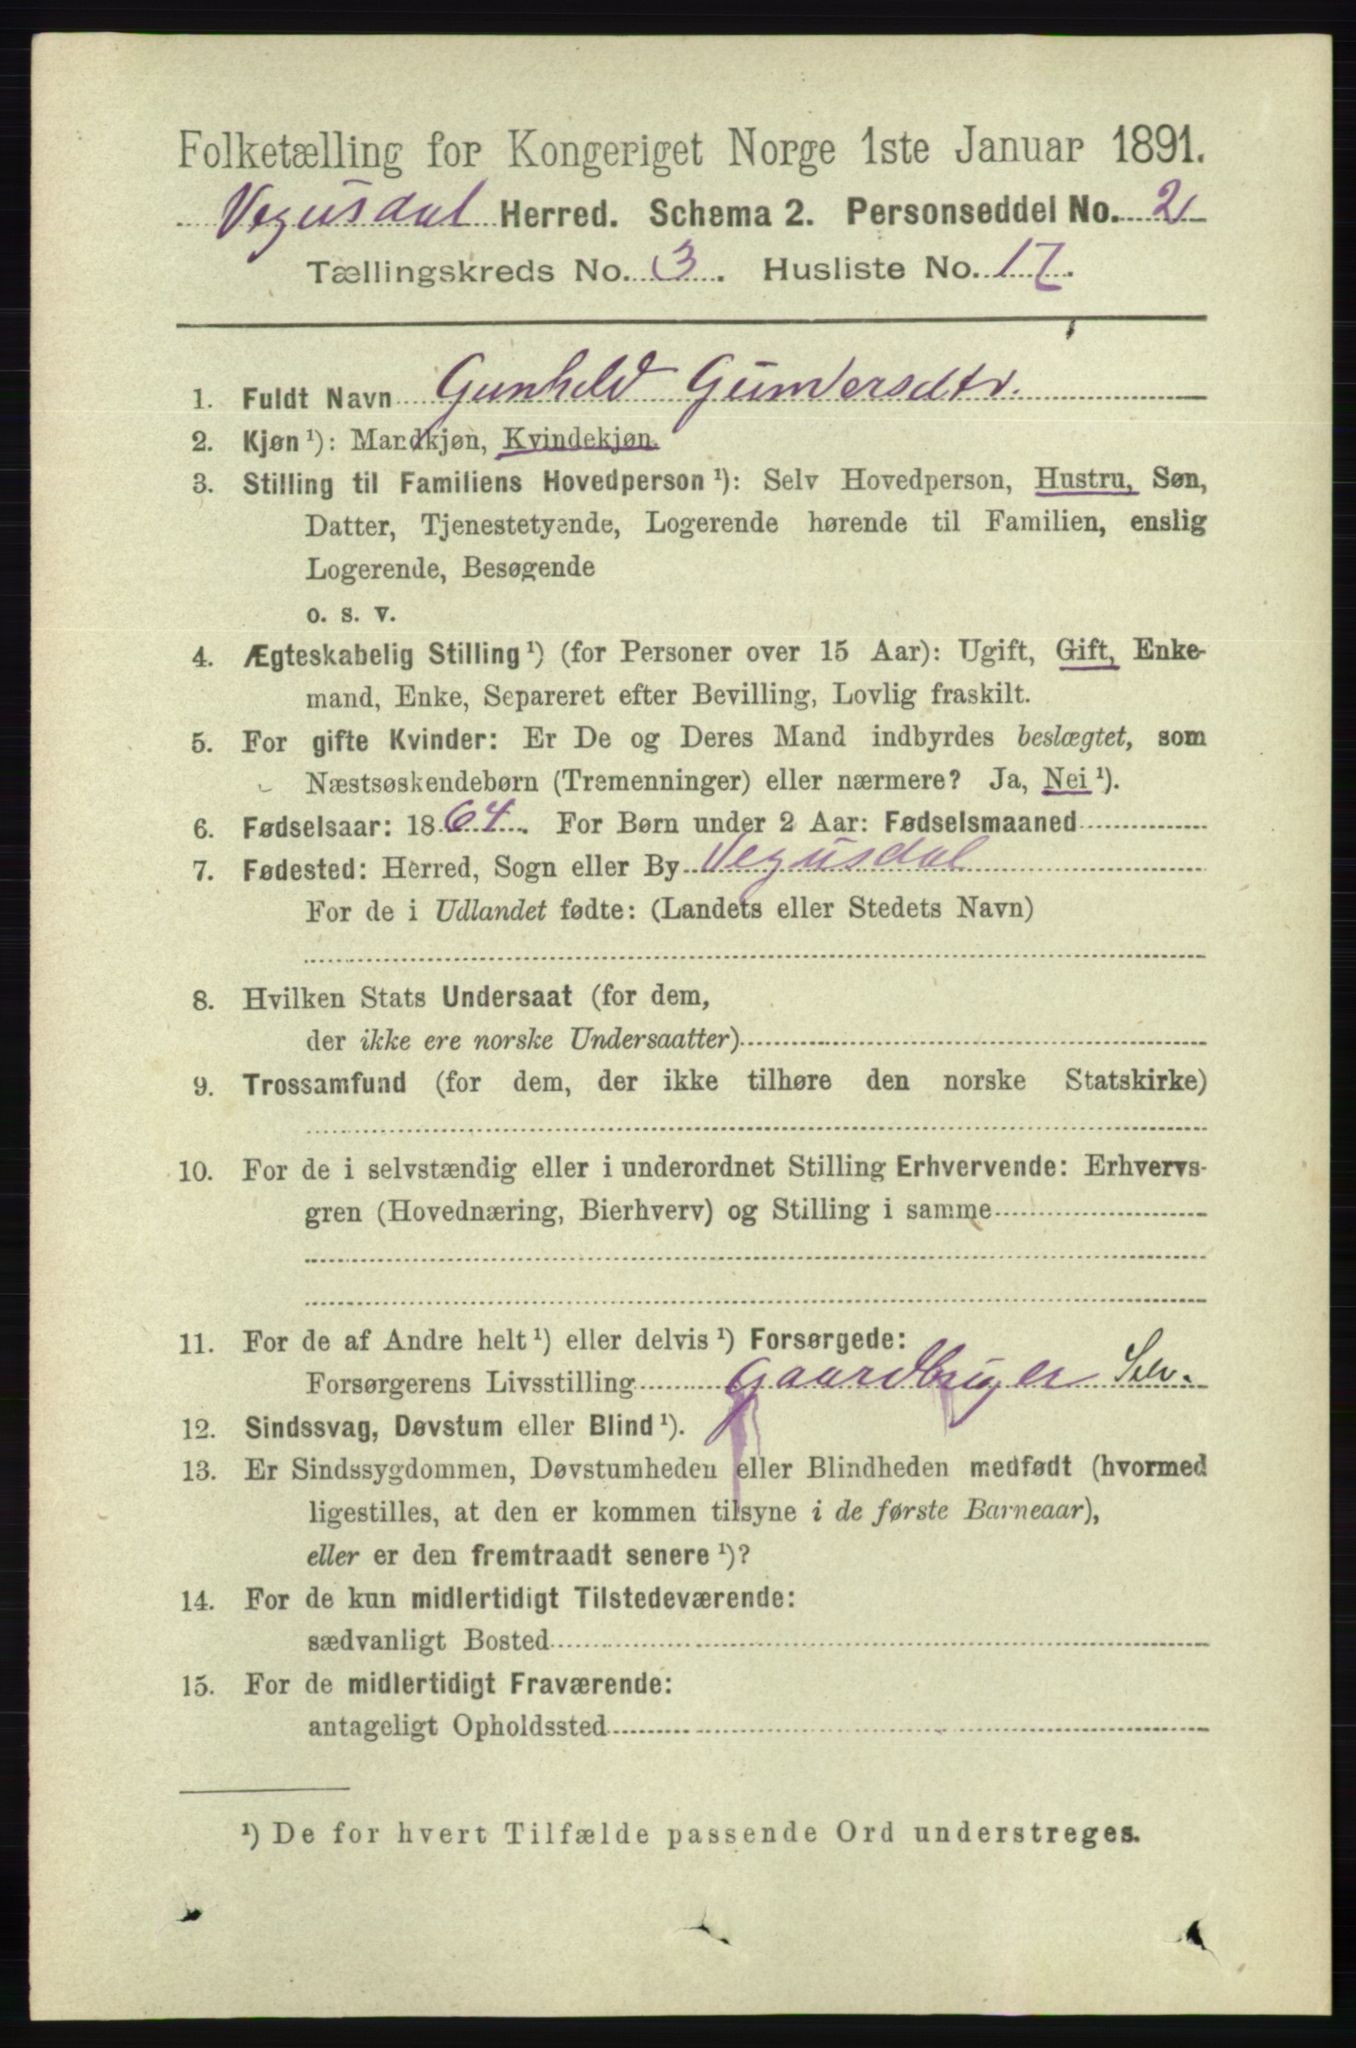 Folketælling for Kongeriget Norge 1ste Januar 1891.
Vegusdal Herred. Schema 2. Personseddel No. 2
Tællingskreds No. 3. Husliste No. 17.
1. Fuldt Navn Gunhild Gundersdtr.
2. Kjøn ¹): Mandkjøn, Kvindekjøn.
3. Stilling til Familiens Hovedperson ¹): Selv Hovedperson, Hustru, Søn,
Datter, Tjenestetyende, Logerende hørende til Familien, enslig
Logerende, Besøgende
o. s. v.
4. Ægteskabelig Stilling ¹) (for Personer over 15 Aar): Ugift, Gift, Enke-
mand, Enke, Separeret efter Bevilling, Lovlig fraskilt.
5. For gifte Kvinder: Er De og Deres Mand indbyrdes beslægtet, som
Næstsøskendebørn (Tremenninger) eller nærmere? Ja, Nei ¹).
6. Fødselsaar: 1864. For Børn under 2 Aar: Fødselsmaaned
7. Fødested: Herred, Sogn eller By Vegusdal
For de i Udlandet fødte: (Landets eller Stedets Navn)
8. Hvilken Stats Undersaat (for dem,
der ikke ere norske Undersaatter)
9. Trossamfund (for dem, der ikke tilhøre den norske Statskirke)
10. For de i selvstændig eller i underordnet Stilling Erhvervende: Erhvervs-
gren (Hovednæring, Bierhverv) og Stilling i samme
11. For de af Andre helt ¹) eller delvis ¹) Forsørgede:
Forsørgerens Livsstilling Gaardbruger Selv.
12. Sindssvag, Døvstum eller Blind ¹).
13. Er Sindssygdommen, Døvstumheden eller Blindheden medfødt (hvormed
ligestilles, at den er kommen tilsyne i de første Barneaar),
eller er den fremtraadt senere ¹)?
14. For de kun midlertidigt Tilstedeværende:
sædvanligt Bosted
15. For de midlertidigt Fraværende:
antageligt Opholdssted
¹) De for hvert Tilfælde passende Ord understreges.